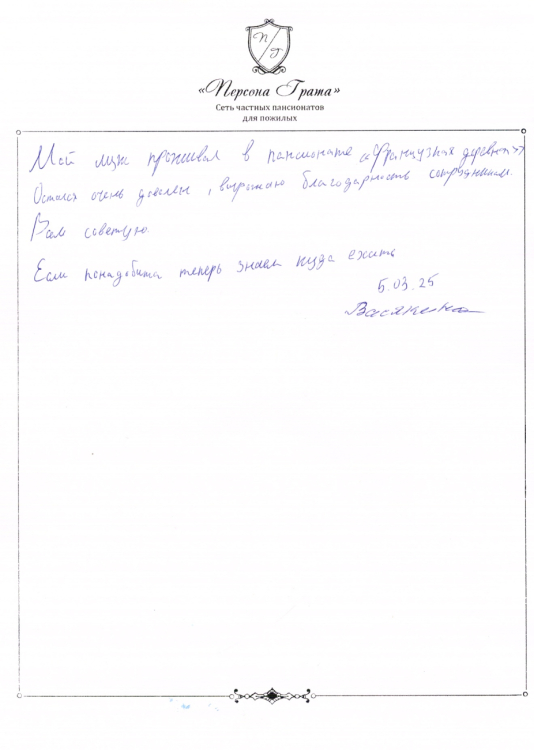 П Г
«Персона Грата»
Сеть частных пансионатов
для пожилых
Мой муж проживал в пансионате «Французкая деревня»
Остался очень доволен, выражаю благодарность сотрудникам.
Вам советую.
Если понадобится теперь знаем куда ехать
5.03.25